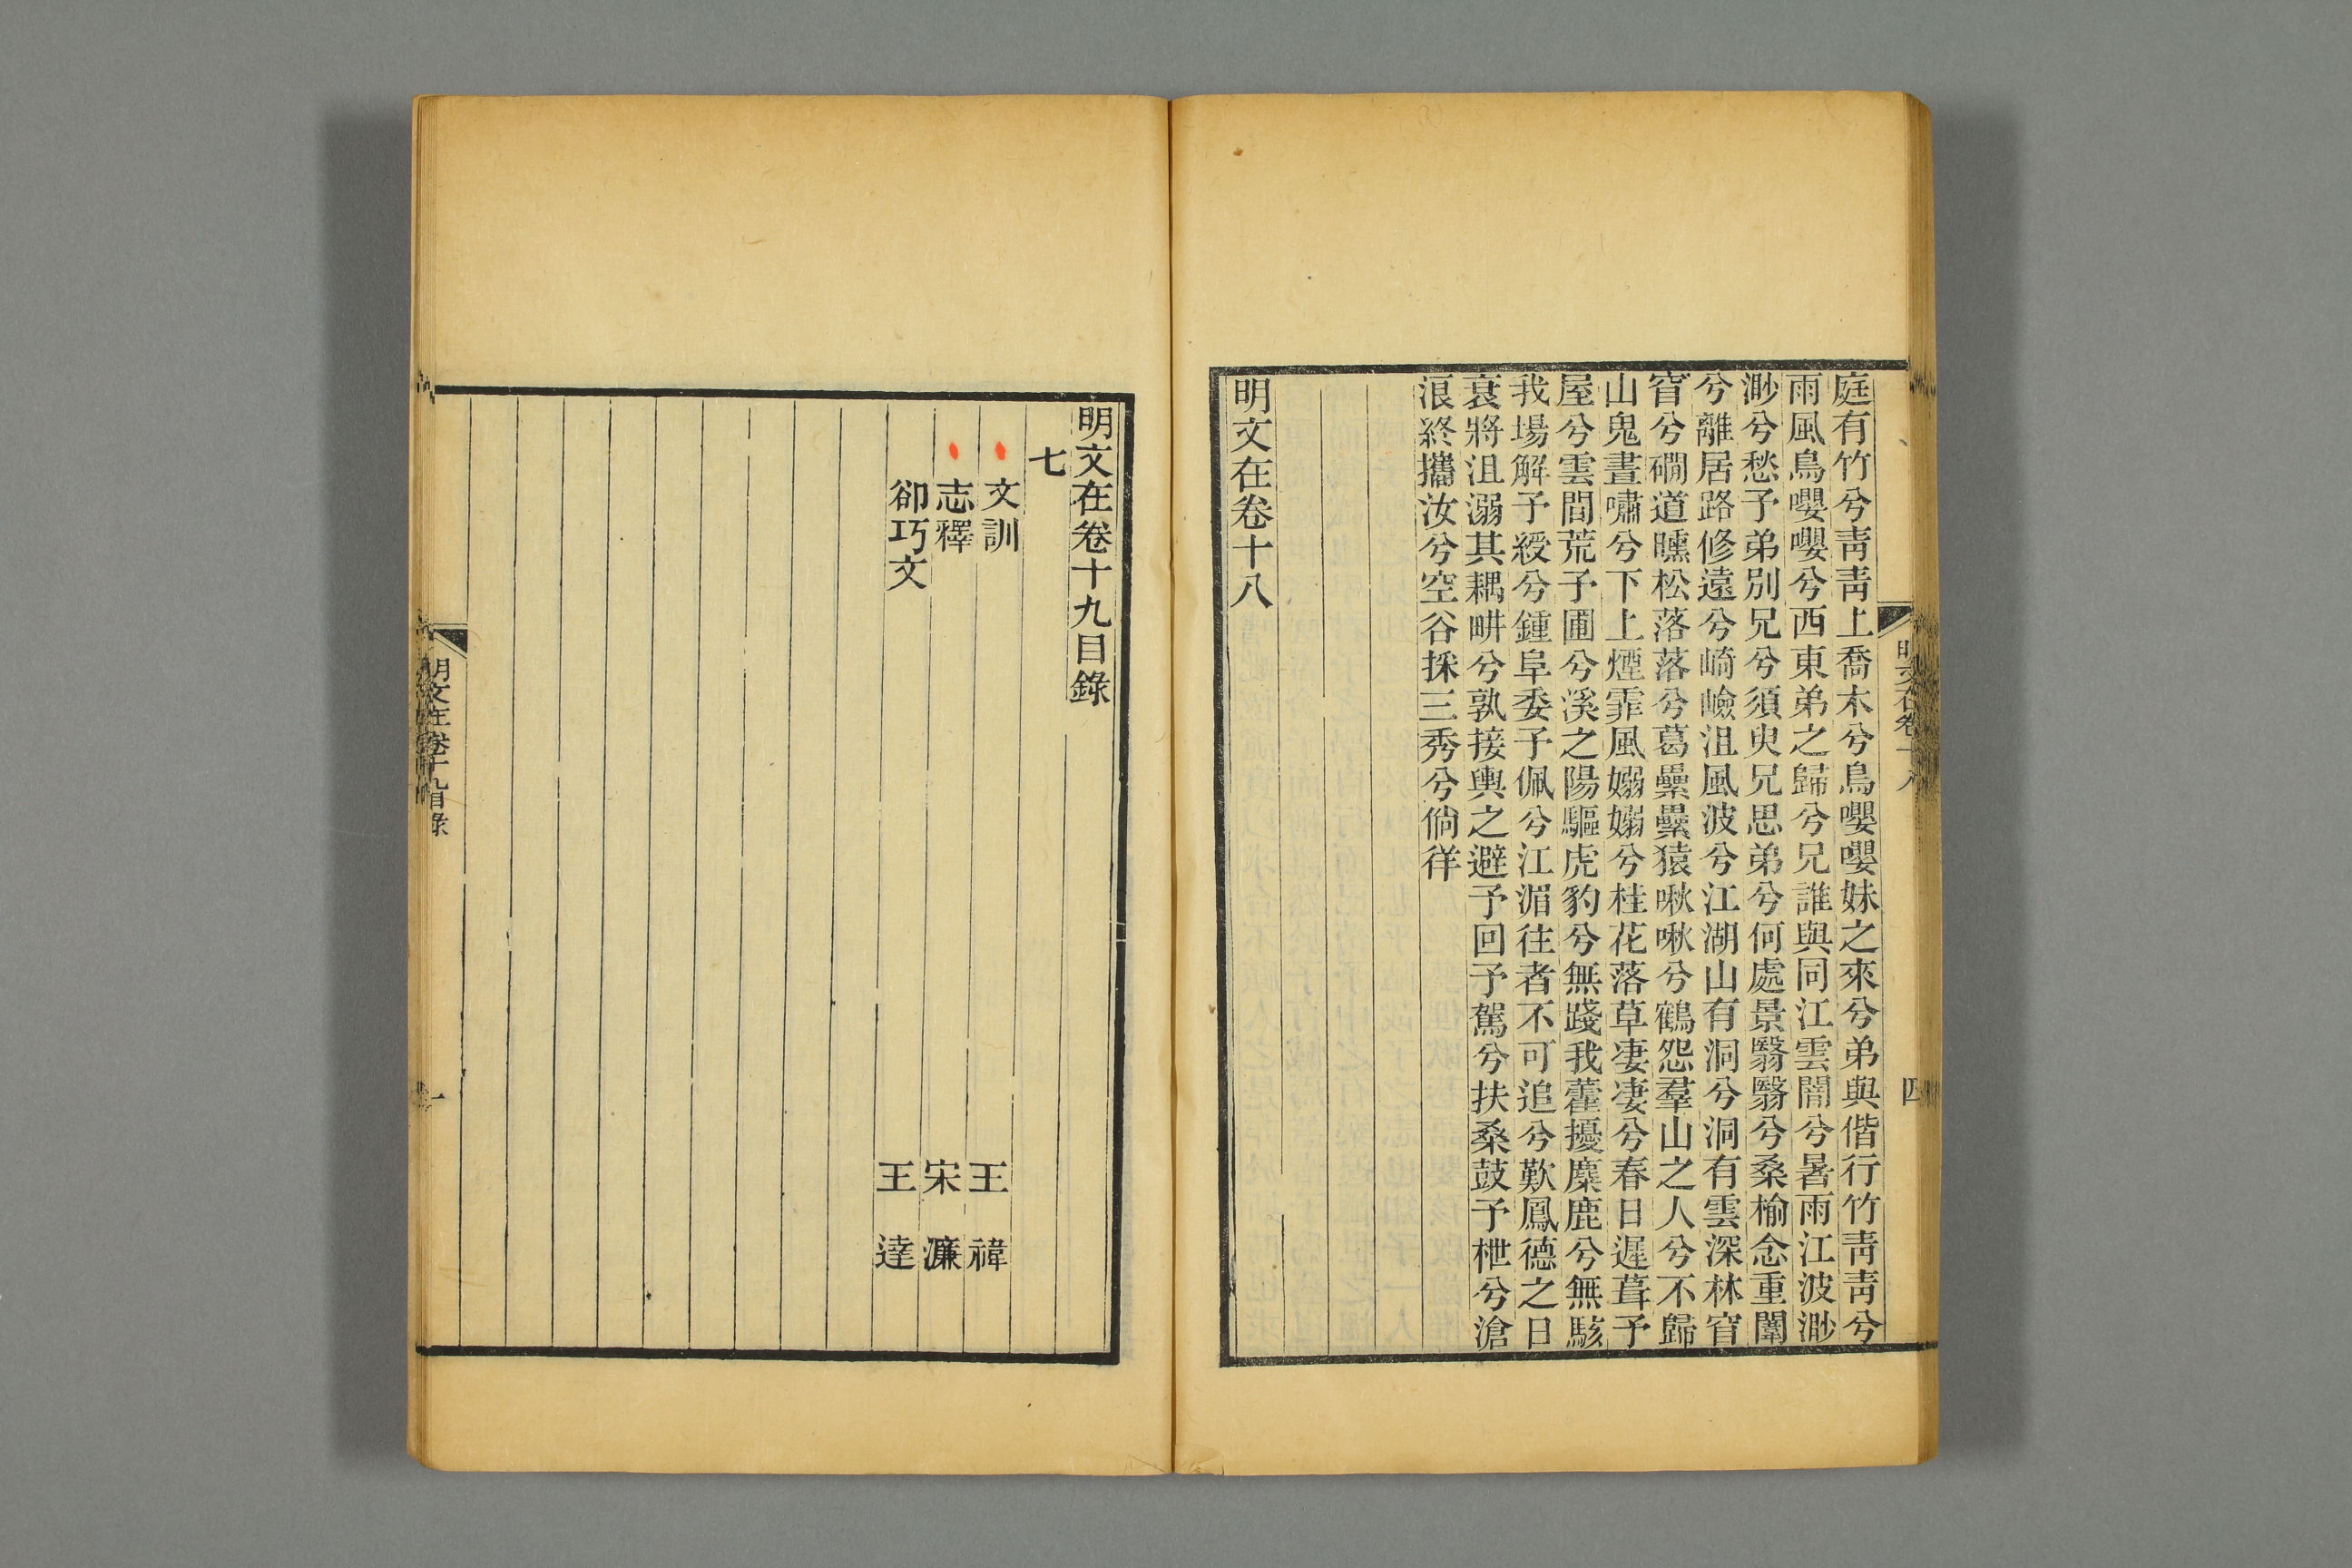 庭有竹兮靑靑上喬木兮鳥嚶嚶妹之來兮弟與偕行竹靑靑兮
雨風鳥嚶嚶兮西東弟之歸兮兄誰與同江雲闇兮暑雨江波渺
渺兮愁予弟別兄兮須臾兄思弟兮何處景翳翳兮桑榆念重闈
兮離居路修遠兮崎嶮沮風波兮江湖山有洞兮洞有雲深林窅
窅兮磵道曛松落落兮葛纍纍猿啾啾兮鶴怨羣山之人兮不歸
山鬼晝嘯兮下上煙霏風嫋嫋兮桂花落草凄凄兮春日遲葺予
屋兮雲間荒予圃兮溪之陽驅虎豹兮無踐我藿擾麋鹿兮無駭
我場解予綬兮鍾阜委予佩兮江湄往者不可追兮歎鳳德之日
衰將沮溺其耦畊兮孰接輿之避予回予駕兮扶桑鼓予枻兮滄
浪終攜汝兮空谷採三秀兮倘徉
明文在卷十八
明文在卷十八
四
明文在卷十九目錄
七
文訓 王禕
志釋 宋濂
卻巧文 王達
明文在卷十九目錄
一